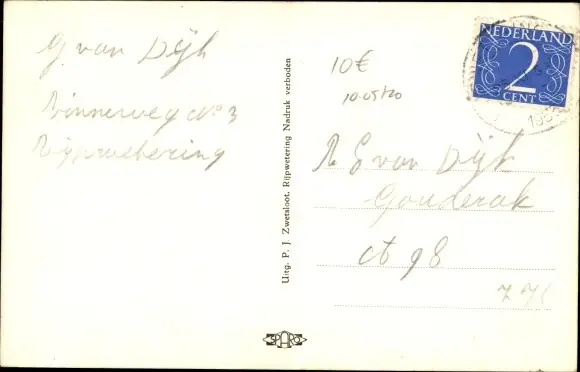 G van Dijk
Binnenweg No 3
Rijpwetering
Uitg. P. J. Zwetsloot, Rijpwetering Nadruk verboden
10€
10-05/20
NEDERLAND
2
CENT
van Dijk
Gouderak
98
SPARO